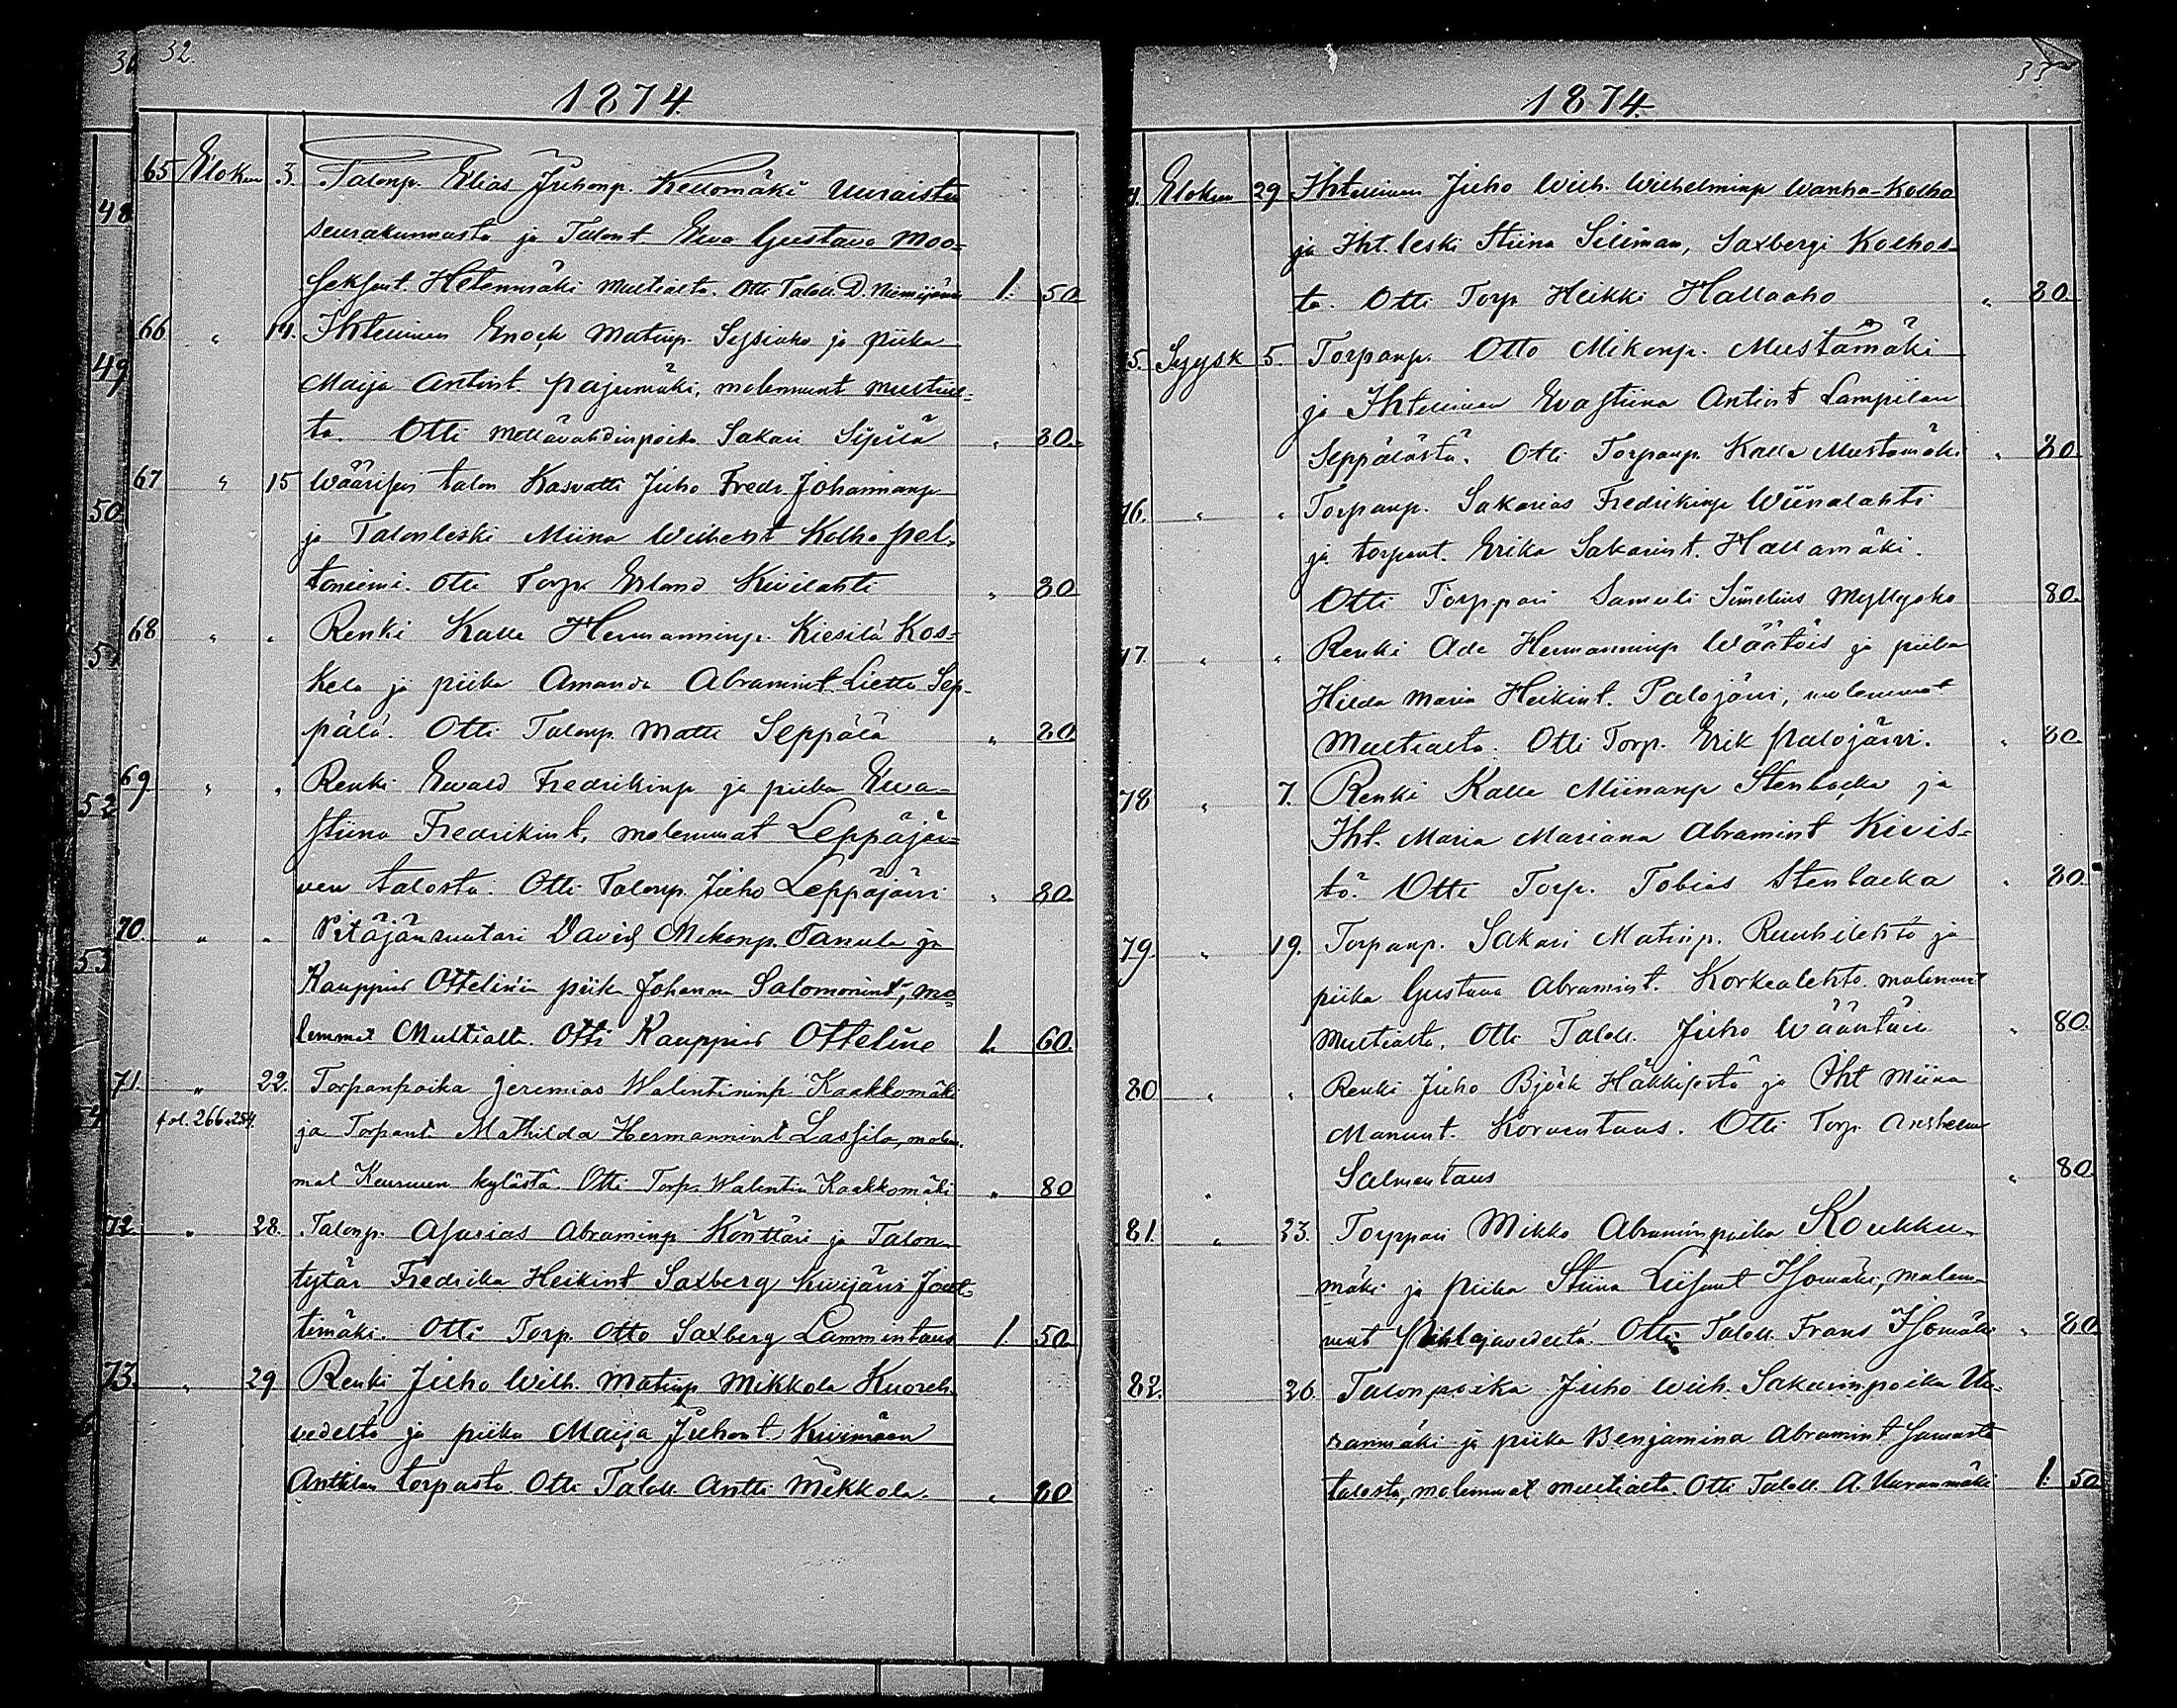 32.
1874.
65 Elokuu 3. Talonp. Elias Juhonp. Kellomäki Uuraisten
seurakunnasta ja Talont. Ewa Gustava Moo=
seksent. Hetenmäki Multialta. Otti Taloll. D. Niemijärvi 1. 50
66 " 14. Ihtellinen Enoch Matinp. Sysiaho ja piika
Maija Antint. Pajumäki, molemmat Multial=
ta. Otti Mettävahdinpoika Sakari Sipilä " 80.
67 " 15 Wäärisen talon Kasvatti Juho Fredr. Johanninp
ja Talonleski Miina Wilhelmt Kolho Pel=
toniemi. Otti Torp. Erland Kivilahti " 80
68 " " Renki Kalle Hermanninp. Kiesilä Kos=
kela ja piika Amanda Abramint. Lietto Sep=
pälä. Otti Talonp. Matti Seppälä " 80
69 " " Renki Ewald Fredrikinp ja piika Ewa=
stiina Fredrikint, molemmat Leppäjär=
ven talosta. Otti Talonp. Juho Leppäjärvi " 80.
70. " " Pitäjänsuutari David Mikonp. Tanula ja
Kauppias Ottelinin piika Johanna Salomonint, mo=
lemmat Multialta. Otti Kauppias Otteline 1. 60.
71. " 22. Torpanpoika Jeremias Walentininp Kaakkomäki
fol. 266.254. ja Torpant. Mathilda Hermannint Lassila, molem=
mat Keuruun kylästä. Otti Torp. Walentin Kaakkomäki " 80
72. " 28. Talonp. Asarias Abraminp Könttäri ja Talon=
tytär Fredrika Heikint Saxberg Kivijärvi Jout=
timäki. Otti Torp. Otto Saxberg Lammintaus 1. 50.
73. " 29 Renki Juho Wilh. Matinp Mikkola Kuoreh=
vedeltä ja piika Maija Juhont Kivimäen
Anttilan torpasta. Otti Taloll. Antti Mikkola. " 80
33
1874.
Elokuu 29 Ihtellinen Juho Wilh. Wilhelminp Wanha-Kolho
ja Iht. leski Stiina Siliman, Saxbergi Kolhos=
ta. Otti Torp Heikki Hallaaho " 80.
5. Syysk 5. Torpanp. Otto Mikonp. Mustamäki
ja Ihtellinen Ewastiina Antint Lampilan
Seppälästä. Otti Torpanp. Kalle Mustamäki " 80
76. " " Torpanp. Sakarias Fredrikinp Wiinalahti
ja torpant. Erika Sakarint. Hallamäki.
Otti Torppari Samuli Simelius Myllyaho 80.
77. " " Renki Ade Hermanninp Wäätöis ja piika
Hilda Maria Heikint. Palojärvi, molemmat
Multialta. Otti Torp. Erik Palojärvi. " 80.
78 " 7. Renki Kalle Miinanp Stenbacka ja
Iht. Maria Mariana Abramint Kivis=
tö. Otti Torp. Tobias Stenbacka " 80.
79. " 19. Torpanp. Sakari Matinp. Ruuhilehto ja
piika Gustava Abramint. Korkealehto molemmat
Multialta. Otti Taloll. Juho Wääntäin " 80.
80 " " Renki Juho Björk Häkkisestä ja Iht Miina
Manunt. Korventaus. Otti Torp. Anshelm
Salmentaus " 80.
81. " 23. Torppari Mikko Abraminpoika Koukku=
mäki ja piika Stiina Liisant Isomäki, molem=
mat Pihlajavedeltä. Otti Taloll. Frans Isomäki " 80.
82. 26. Talonpoika Juho Wilh. Sakarinpoika Uu=
ranmäki ja piika Benjamina Abramint samasta
talosta, molemmat Multialta. Otti Taloll. A. Uuranmäki 1. 50